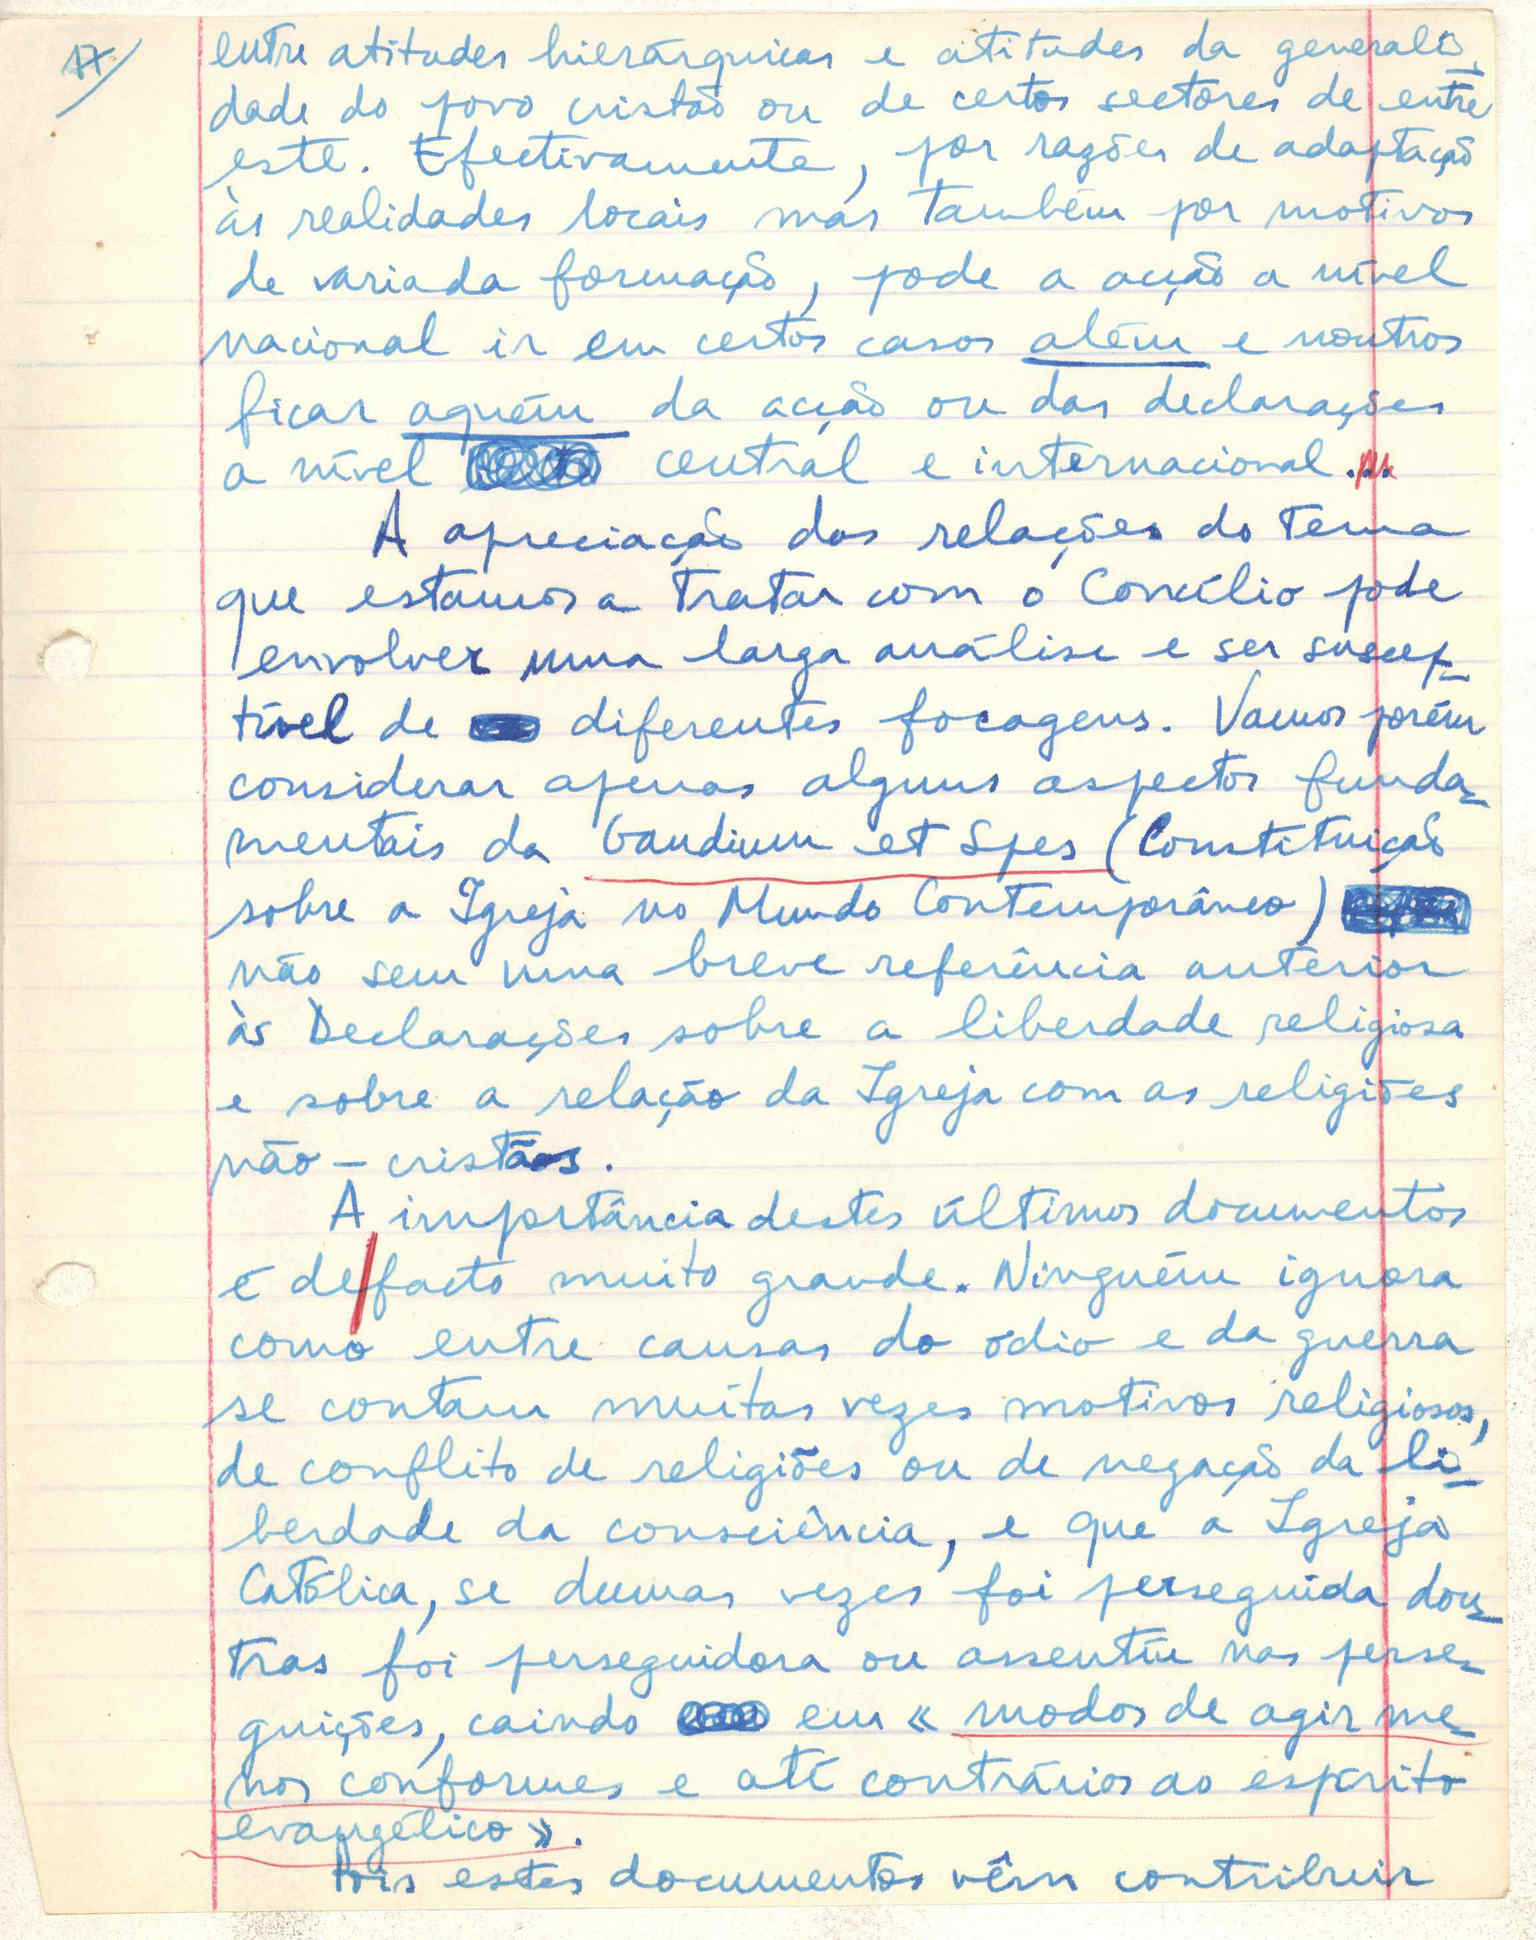 17
entre atitudes hierárquicas e atitudes da generali-
dade do povo cristão ou de certos sectores de entre
este. Efectivamente, por razões de adaptação
às realidades locais mas também por motivos
de variada formação, pode a acção a nível
nacional ir em certos casos além e noutros
ficar aquém da acção ou das declarações
a nível central e internacional...
A apreciação das relações do tema
que estamos a tratar com o Concílio pode
envolver uma larga análise e ser suscep-
tível de diferentes focagens. Vamos porém
considerar apenas alguns aspectos funda-
mentais da Gaudium et Spes (Constituição
sobre a Igreja no Mundo Contemporâneo)
não sem uma breve referência anterior
às Declarações sobre a liberdade religiosa
e sobre a relação da Igreja com as religiões
não-cristãs.
A importância destes últimos documentos
é de/facto muito grande. Ninguém ignora
como entre causas do ódio e da guerra
se contam muitas vezes motivos religiosos,
de conflito de religiões ou de negação da li-
berdade da consciência, e que a Igreja
Católica, se dumas vezes foi perseguida dou-
tras foi perseguidora ou assentiu nas perse-
guições, caindo em « modos de agir me-
nos conformes e até contrários ao espírito
evangélico ».
Pois estes documentos vêm contribuir